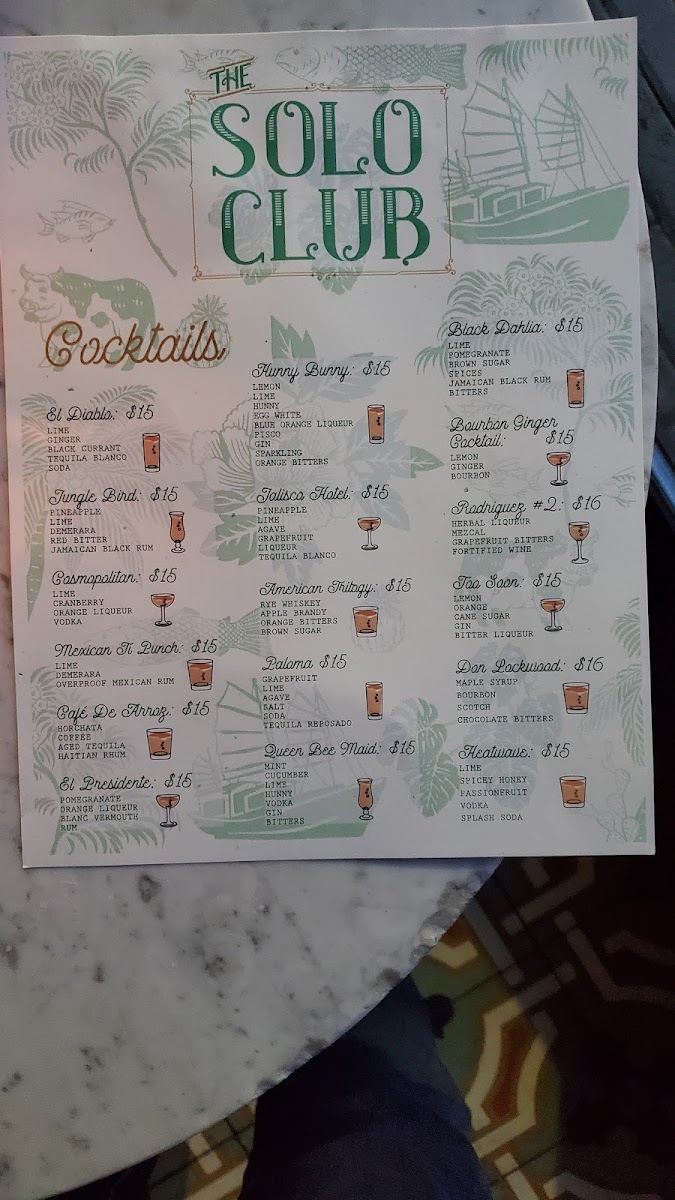 THE
SOLO
CLUB
Cocktails
El Diablo: $15
LIME
GINGER
BLACK CURRANT
TEQUILA BLANCO
SODA
Jungle Bird: $15
PINEAPPLE
LIME
DEMERARA
RED BITTER
JAMAICAN BLACK RUM
Cosmopolitan: $15
LIME
CRANBERRY
ORANGE LIQUEUR
VODKA
Mexican Ti Punch: $15
LIME
DEMERARA
OVERPROOF MEXICAN RUM
Café De Arroz: $15
HORCHATA
COFFEE
AGED TEQUILA
HAITIAN RHUM
El Presidente: $15
POMEGRANATE
ORANGE LIQUEUR
BLANC VERMOUTH
RUM
Hunny Bunny: $15
LEMON
LIME
HUNNY
EGG WHITE
BLUE ORANGE LIQUEUR
PISCO
GIN
SPARKLING
ORANGE BITTERS
Jalisco Hotel: $15
PINEAPPLE
LIME
AGAVE
GRAPEFRUIT
LIQUEUR
TEQUILA BLANCO
American Trilogy: $15
RYE WHISKEY
APPLE BRANDY
ORANGE BITTERS
BROWN SUGAR
Paloma $15
GRAPEFRUIT
LIME
AGAVE
SALT
SODA
TEQUILA REPOSADO
Queen Bee Maid: $15
MINT
CUCUMBER
LIME
HUNNY
VODKA
GIN
BITTERS
Black Dahlia: $15
LIME
POMEGRANATE
BROWN SUGAR
SPICES
JAMAICAN BLACK RUM
BITTERS
Bourbon Ginger
Cocktail: $15
LEMON
GINGER
BOURBON
Rodriguez #2: $16
HERBAL LIQUEUR
MEZCAL
GRAPEFRUIT BITTERS
FORTIFIED WINE
Too Soon: $15
LEMON
ORANGE
CANE SUGAR
GIN
BITTER LIQUEUR
Don Lockwood: $16
MAPLE SYRUP
BOURBON
SCOTCH
CHOCOLATE BITTERS
Heatwave: $15
LIME
SPICEY HONEY
PASSIONFRUIT
VODKA
SPLASH SODA